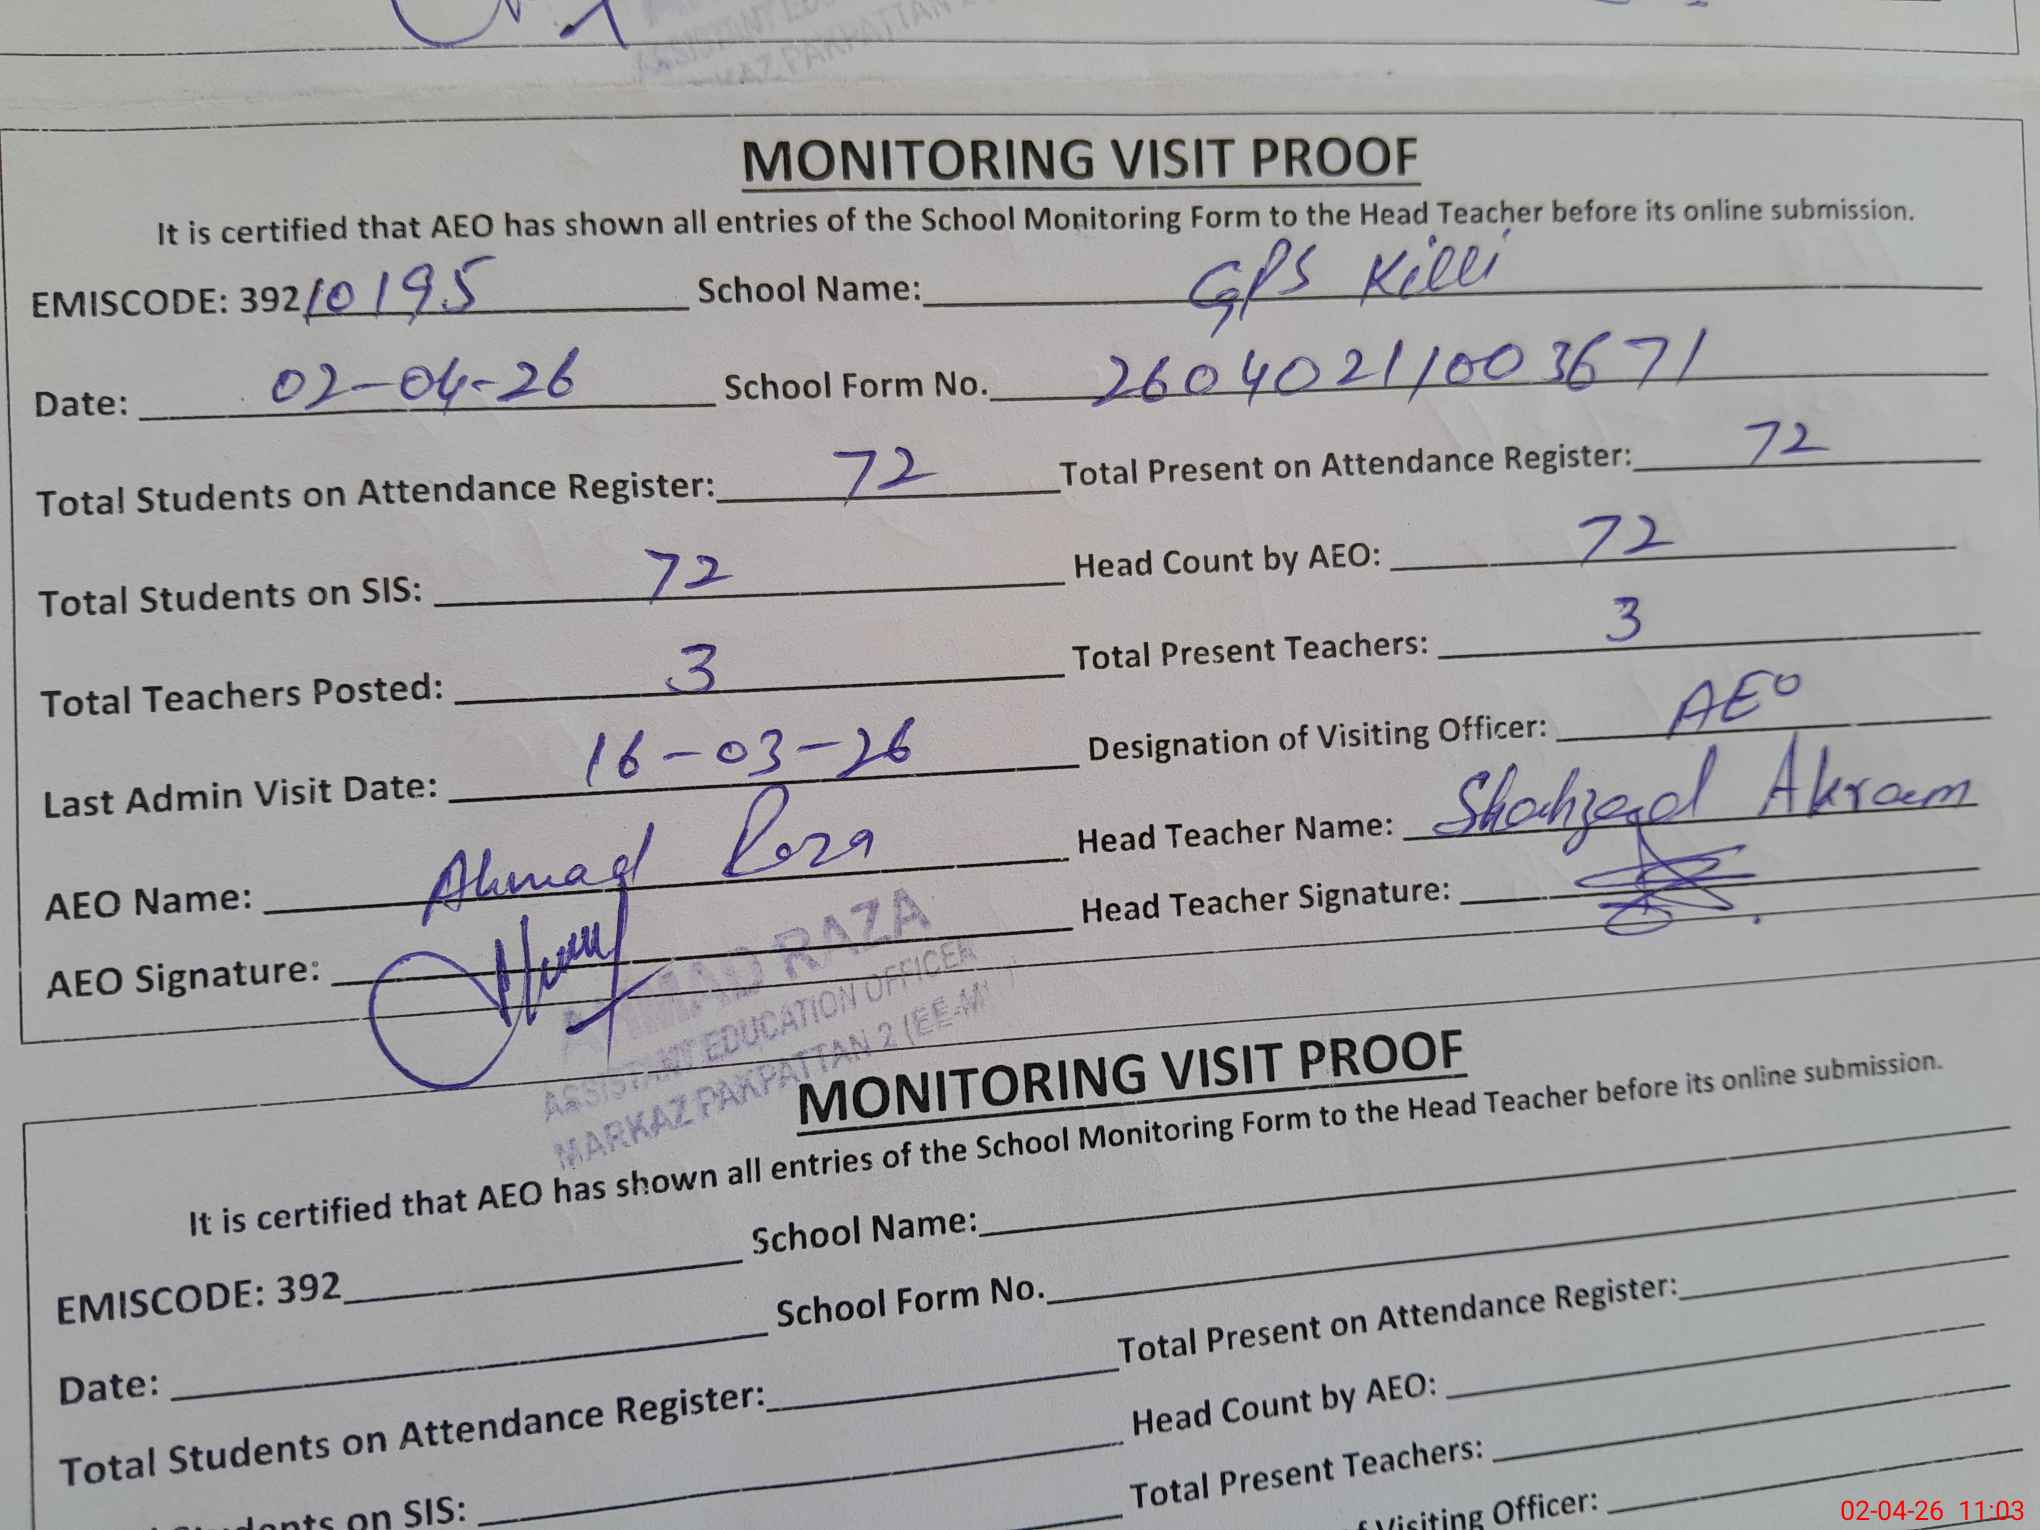 ASSISTANT EDU
KAZ PAKPATTAN
MONITORING VISIT PROOF
It is certified that AEO has shown all entries of the School Monitoring Form to the Head Teacher before its online submission.
EMISCODE: 39210195 School Name: GPS Killi
Date: 02-04-26 School Form No. 26040211003671
Total Students on Attendance Register: 72 Total Present on Attendance Register: 72
Total Students on SIS: 72 Head Count by AEO: 72
Total Teachers Posted: 3 Total Present Teachers: 3
Last Admin Visit Date: 16-03-26 Designation of Visiting Officer: AEO
AEO Name: Ahmad Raza Head Teacher Name: Shahzad Akram
AEO Signature: Head Teacher Signature:
AHMAD RAZA
ASSISTANT EDUCATION OFFICER
MARKAZ PAKPATTAN 2 (EE-M)
MONITORING VISIT PROOF
It is certified that AEO has shown all entries of the School Monitoring Form to the Head Teacher before its online submission.
EMISCODE: 392 School Name:
Date: School Form No.
Total Students on Attendance Register: Total Present on Attendance Register:
Students on SIS: Head Count by AEO:
Total Present Teachers:
Visiting Officer:
02-04-26 11:03